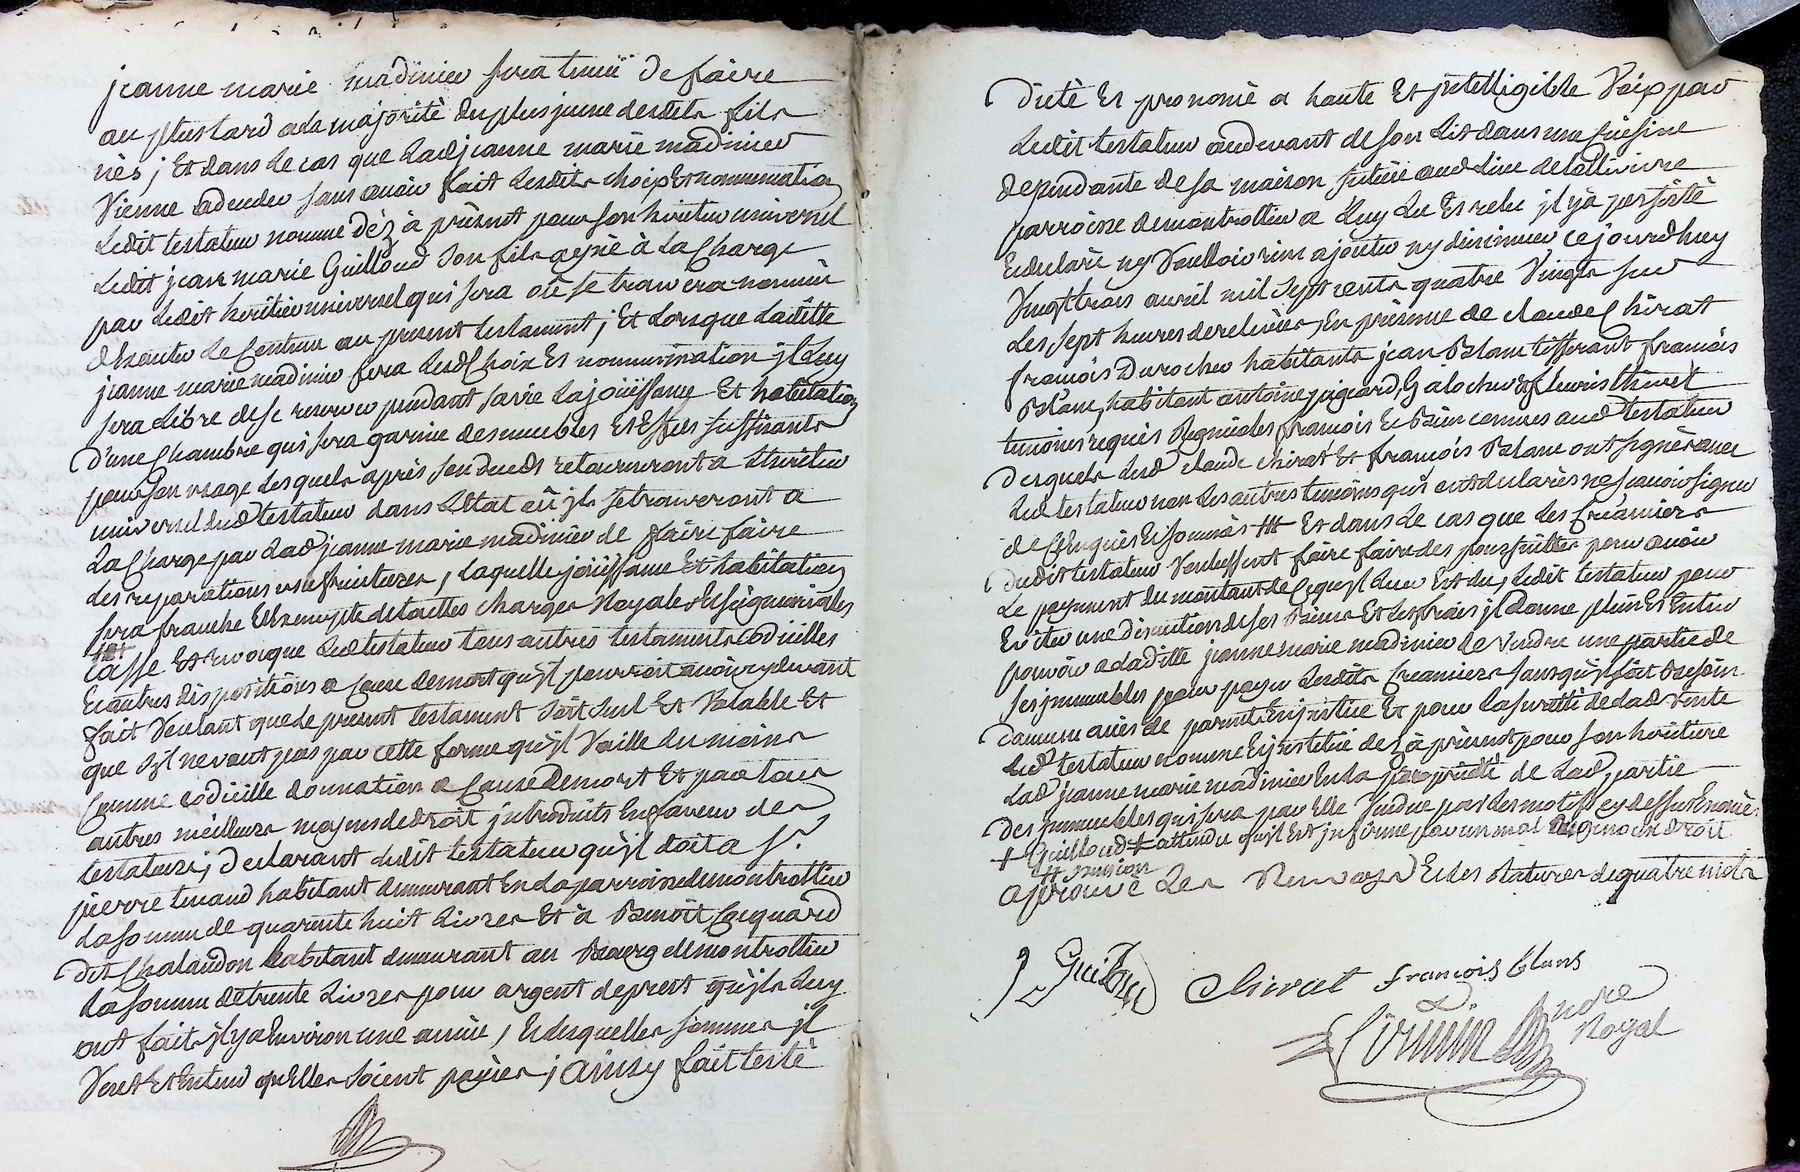 jeanne marie madinier sera tenuë de faire
au plustard a la majorité du plus jeune desdits fils
nés ; Et dans le cas que ladjeanne marie madinier
Vienne adeceder sans avoir fait lesdits choix Et nommination
Ledit testateur nomme déz à présent pour son héritier universel
Ledit jean marie Guilloud son fils ayné à La Charge
par Ledit héritier universel qui sera où se trouvera nommé
d'Executer Le Contenu au present testament ; Et Lorsque Laditte
jeanne marie madinier fera lesd Choix Et nommination jl Luy
sera Libre de se reserver pendant sa vie La jouissance Et habitation
d'une Chambre qui sera garnie des meubles Et Effets suffisants
pour son usage Lesquels après son deceds retourneront a L'heritier
universel dud testateur dans L'Etat où jls se trouveront a
La Charge par Lad jeanne marie madinier de faire faire
les reparations usufruitieres, Laquelle jouissance Et habitation
sera franche Et Exempte detoittes charges Royales Et seigneuriales
Casse Et revoque Led testateur tous autres testaments Codicilles
Et autres dispositions a Cause demort qu'jl pourroit avoir cy devant
fait Veulant que le present testament soit seul Et Valable Et
que s'jl ne vaut pas par cette forme qu'jl Vaille du moins
Comme Codicille donnation a Cause demort Et par tous
autres meilleurs moyens de droit jntroduits En faveur des
testateurs ; Declarant Ledit testateur qu'jl doit a Sr.
pierre tenaud habitant demeurant En La parroisse de montrottier
La somme de quarente huit Livres Et à Benoit Coquard
dit Chalandon habitant demeurant au Bourg de montrottier
La somme de trente Livres pour argent de prest qu'jls Luy
ont fait jl y a Environ une année, Et desquelles sommes jl
Veut Et Entend qu'Elles soient payées ; ainsy fait testé
dicté Et prononcé a haute Et jntelligible Voix par
Ledit testateur audevant de son Lit dans une Cuisine
dependante de sa maison située aud Lieu de
parroisse demontrottier a Luy Lu Et relu jl y a persisté
Et declaré ny Voulloir rien ajouter ny diminuer cejourd'huy
Vingt trois avril mil sept cents quatre Vingts sur
les sept heures derelevées, En présence de claude Chirat
francois Durocher habitants jean Blanc tisserant francois
Blanc, habitant antoine pigeard, Galocher & fleuris thivel
temoins requis Regnicoles francois Et Bien connus aud testateur
Desquels Led claude Chirat Et francois Blanc ont signés avec
Led testateur non Les autres temoins qui ont declarés ne scavoir signer
de Ce Enquis Et sommés ### Et dans Le cas que Les Créanciers
dudit testateur Voulussent faire faire des poursuittes pour avoir
Le payement du montant de Ce qu'jl Leur Est du, Ledit testateur pour
Eviter une discution de ses Biens Et Les frais jl donne plein Et Entier
pouvoir a Laditte jeanne marie madinier de Vendre une partie de
ses jmmeubles pour payer Lesdits Creanciers sans qu'jl soit Besoin
d'aucun avis de parents En justice Et pour La suretté de Lad Vente
Led testateur nomme Et jnstitue dez à présent pour son héritiere
Lad jeanne marie madinier En La proprieté de Lad partie
Des jmmeubles qui sera par Elle Vendue par Les motifs cy dessus Enoncés.
+ Guilloud + attendu qu'jl Est jnfirme par un mal au genou du droit
## pension
aprouvé Les Renvoys Et Les ratures de quatre mots
J Guilloud
Chirat francois blans
Nore
Royal